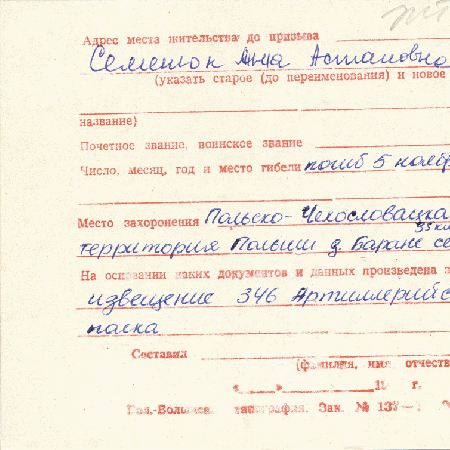 Адрес места жительства до призыва
Семенюк Анна Астаповна
(указать старое (до переименования) и новое
название)
Почетное звание, воинское звание
Число, месяц, год и место гибели погиб 5 ноябр
Место захоронения Польско-Чехословацка
территория Польши д. Баране се
На основании каких документов и данных произведена з
извещение 346 Артиллерийс
полка
Составил
(фамилия, имя, отчеств
« » 19 г.
типография. Зак. № 137—